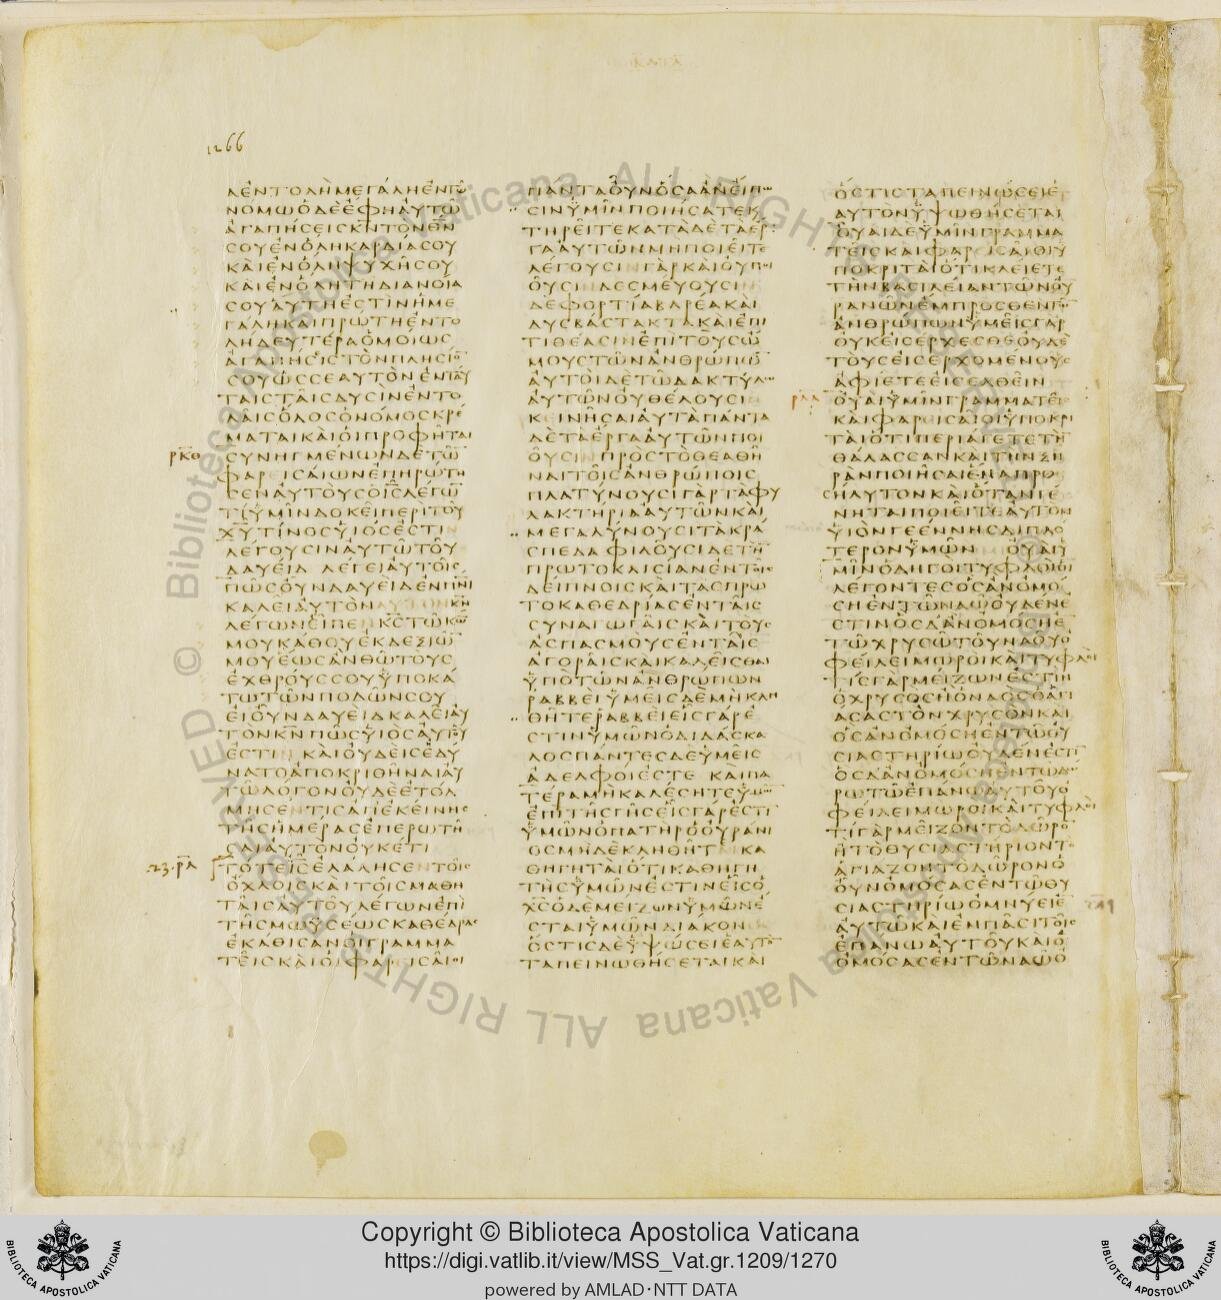 1266
ΛΕΝΤΟΛΗΜΕΓΑΛΗΕΝΤΩ
ΝΟΜΩΟΔΕΕΦΗΑΥΤΩ
ΑΓΑΠΗΣΕΙΣΚΝΤΟΝΘΝ
ΣΟΥΕΝΟΛΗΚΑΡΔΙΑΣΟΥ
ΚΑΙΕΝΟΛΗΨΥΧΗΣΟΥ
ΚΑΙΕΝΟΛΗΤΗΔΙΑΝΟΙΑ
ΣΟΥΑΥΤΗΕΣΤΙΝΗΜΕ
ΓΑΛΗΚΑΙΠΡΩΤΗΕΝΤΟ
ΛΗΔΕΥΤΕΡΑΟΜΟΙΩΣ
ΑΓΑΠΗΣΕΙΣΤΟΝΠΛΗΣΙΟ
ΣΟΥΩΣΣΕΑΥΤΟΝΕΝΤΑΥ
ΤΑΙΣΤΑΙΣΔΥΣΙΝΕΝΤΟ
ΛΑΙΣΟΛΟΣΟΝΟΜΟΣΚΡΕ
ΜΑΤΑΙΚΑΙΟΙΠΡΟΦΗΤΑΙ
ΡΚΘ ΣΥΝΗΓΜΕΝΩΝΔΕΤΩ
ΦΑΡΕΙΣΑΙΩΝΕΠΗΡΩΤΗ
ΣΕΝΑΥΤΟΥΣΟΙΣΛΕΓΩ
ΤΙΥΜΙΝΔΟΚΕΙΠΕΡΙΤΟΥ
ΧΥΤΙΝΟΣΥΙΟΣΕΣΤΙΝ
ΛΕΓΟΥΣΙΝΑΥΤΩΤΟΥ
ΔΑΥΕΙΔ ΛΕΓΕΙΑΥΤΟΙΣ
ΠΩΣΟΥΝΔΑΥΕΙΔΕΝΠΝΙ
ΚΑΛΕΙΑΥΤΟΝΑΥΤΟΝΚΝ
ΛΕΓΩΝΕΙΠΕΝΚΣΤΩΚΩ
ΜΟΥΚΑΘΟΥΕΚΔΕΞΙΩ
ΜΟΥΕΩΣΑΝΘΩΤΟΥΣ
ΕΧΘΡΟΥΣΣΟΥΥΠΟΚΑ
ΤΩΤΩΝΠΟΔΩΝΣΟΥ
ΕΙΟΥΝΔΑΥΕΙΔΚΑΛΕΙΑΥ
ΤΟΝΚΝΠΩΣΥΙΟΣΑΥΤΟΥ
ΕΣΤΙΝ ΚΑΙΟΥΔΕΙΣΕΔΥ
ΝΑΤΟΑΠΟΚΡΙΘΗΝΑΙΑΥ
ΤΩΛΟΓΟΝΟΥΔΕΕΤΟΛ
ΜΗΣΕΝΤΙΣΑΠΕΚΕΙΝΗΣ
ΤΗΣΗΜΕΡΑΣΕΠΕΡΩΤΗ
ΣΑΙΑΥΤΟΝΟΥΚΕΤΙ
23. ΡΛ ΤΟΤΕΙΣΕΛΑΛΗΣΕΝΤΟΙΣ
ΟΧΛΟΙΣΚΑΙΤΟΙΣΜΑΘΗ
ΤΑΙΣΑΥΤΟΥΛΕΓΩΝΕΠΙ
ΤΗΣΜΩΥΣΕΩΣΚΑΘΕΔΡΑΣ
ΕΚΑΘΙΣΑΝΟΙΓΡΑΜΜΑ
ΤΕΙΣΚΑΙΟΙΦΑΡΕΙΣΑΙΟΙ
ΠΑΝΤΑΟΥΝΟΣΑΑΝΕΙΠΩ
ΣΙΝΥΜΙΝΠΟΙΗΣΑΤΕΚ
ΤΗΡΕΙΤΕΚΑΤΑΔΕΤΑΕΡ
ΓΑΑΥΤΩΝΜΗΠΟΙΕΙΤΕ
ΛΕΓΟΥΣΙΝΓΑΡΚΑΙΟΥΠΟΙ
ΟΥΣΙΝΔΕΣΜΕΥΟΥΣΙΝ
ΔΕΦΟΡΤΙΑΒΑΡΕΑΚΑΙ
ΔΥΣΒΑΣΤΑΚΤΑΚΑΙΕΠΙ
ΤΙΘΕΑΣΙΝΕΠΙΤΟΥΣΩ
ΜΟΥΣΤΩΝΑΝΘΡΩΠΩ
ΑΥΤΟΙΔΕΤΩΔΑΚΤΥΛΩ
ΑΥΤΩΝΟΥΘΕΛΟΥΣΙ
ΚΕΙΝΗΣΑΙΑΥΤΑΠΑΝΤΑ
ΔΕΤΑΕΡΓΑΑΥΤΩΝΠΟΙ
ΟΥΣΙΝΠΡΟΣΤΟΘΕΑΘΗ
ΝΑΙΤΟΙΣΑΝΘΡΩΠΟΙΣ
ΠΛΑΤΥΝΟΥΣΙΓΑΡΤΑΦΥ
ΛΑΚΤΗΡΙΑΑΥΤΩΝΚΑΙ
ΜΕΓΑΛΥΝΟΥΣΙΤΑΚΡΑ
ΣΠΕΔΑΦΙΛΟΥΣΙΔΕΤΗ
ΠΡΩΤΟΚΛΙΣΙΑΝΕΝΤΟΙΣ
ΔΕΙΠΝΟΙΣΚΑΙΤΑΣΠΡΩ
ΤΟΚΑΘΕΔΡΙΑΣΕΝΤΑΙΣ
ΣΥΝΑΓΩΓΑΙΣΚΑΙΤΟΥΣ
ΑΣΠΑΣΜΟΥΣΕΝΤΑΙΣ
ΑΓΟΡΑΙΣΚΑΙΚΑΛΕΙΣΘΑΙ
ΥΠΟΤΩΝΑΝΘΡΩΠΩΝ
ΡΑΒΒΕΙΥΜΕΙΣΔΕΜΗΚΛΗ
ΘΗΤΕΡΑΒΒΕΙΕΙΣΓΑΡΕ
ΣΤΙΝΥΜΩΝΟΔΙΔΑΣΚΑ
ΛΟΣΠΑΝΤΕΣΔΕΥΜΕΙΣ
ΑΔΕΛΦΟΙΕΣΤΕ ΚΑΙΠΑ
ΤΕΡΑΜΗΚΑΛΕΣΗΤΕΥΜΩ
ΕΠΙΤΗΣΓΗΣΕΙΣΓΑΡΕΣΤΙ
ΥΜΩΝΟΠΑΤΗΡΟΟΥΡΑΝΙ
ΟΣΜΗΔΕΚΛΗΘΗΤΕ ΚΑ
ΘΗΓΗΤΑΙΟΤΙΚΑΘΗΓΗ
ΤΗΣΥΜΩΝΕΣΤΙΝΕΙΣΟ
ΧΣΟΔΕΜΕΙΖΩΝΥΜΩΝΕ
ΣΤΑΙΥΜΩΝΔΙΑΚΟΝΟΣ
ΟΣΤΙΣΔΕΥΨΩΣΕΙΕΑΥΤΟ
ΤΑΠΕΙΝΩΘΗΣΕΤΑΙΚΑΙ
ΟΣΤΙΣΤΑΠΕΙΝΩΣΕΙΕ
ΑΥΤΟΝΥΨΩΘΗΣΕΤΑΙ
ΟΥΑΙΔΕΥΜΙΝΓΡΑΜΜΑ
ΤΕΙΣΚΑΙΦΑΡΕΙΣΑΙΟΙΥ
ΠΟΚΡΙΤΑΙΟΤΙΚΛΕΙΕΤΕ
ΤΗΝΒΑΣΙΛΕΙΑΝΤΩΝΟΥ
ΡΑΝΩΝΕΜΠΡΟΣΘΕΝΤΩ
ΑΝΘΡΩΠΩΝΥΜΕΙΣΓΑΡ
ΟΥΚΕΙΣΕΡΧΕΣΘΕΟΥΔΕ
ΤΟΥΣΕΙΣΕΡΧΟΜΕΝΟΥΣ
ΑΦΙΕΤΕΕΙΣΕΛΘΕΙΝ
ΡΛΑ ΟΥΑΙΥΜΙΝΓΡΑΜΜΑΤΕΙΣ
ΚΑΙΦΑΡΕΙΣΑΙΟΙΥΠΟΚΡΙ
ΤΑΙΟΤΙΠΕΡΙΑΓΕΤΕΤΗ
ΘΑΛΑΣΣΑΝΚΑΙΤΗΝΞΗ
ΡΑΝΠΟΙΗΣΑΙΕΝΑΠΡΟ
ΣΗΛΥΤΟΝΚΑΙΟΤΑΝΓΕ
ΝΗΤΑΙΠΟΙΕΙΤΕΑΥΤΟΝ
ΥΙΟΝΓΕΕΝΝΗΣΔΙΠΛΟ
ΤΕΡΟΝΥΜΩΝ ΟΥΑΙΥ
ΜΙΝΟΔΗΓΟΙΤΥΦΛΟΙΟΙ
ΛΕΓΟΝΤΕΣΟΣΑΝΟΜΟ
ΣΗΕΝΤΩΝΑΩΟΥΔΕΝΕ
ΣΤΙΝΟΣΔΑΝΟΜΟΣΗΕ
ΤΩΧΡΥΣΩΤΟΥΝΑΟΥΟ
ΦΕΙΛΕΙΜΩΡΟΙΚΑΙΤΥΦΛΟΙ
ΤΙΣΓΑΡΜΕΙΖΩΝΕΣΤΙΝ
ΟΧΡΥΣΟΣΗΟΝΑΟΣΟΑΓΙ
ΑΣΑΣΤΟΝΧΡΥΣΟΝΚΑΙ
ΟΣΑΝΟΜΟΣΗΕΝΤΩΘΥ
ΣΙΑΣΤΗΡΙΩΟΥΔΕΝΕΣΤΙ
ΟΣΔΑΝΟΜΟΣΗΕΝΤΩΔΩ
ΡΩΤΩΕΠΑΝΩΑΥΤΟΥΟ
ΦΕΙΛΕΙΜΩΡΟΙΚΑΙΤΥΦΛΟΙ
ΤΙΓΑΡΜΕΙΖΟΝΤΟΔΩΡΟ
ΗΤΟΘΥΣΙΑΣΤΗΡΙΟΝΤΟ
ΑΓΙΑΖΟΝΤΟΔΩΡΟΝΟ
ΟΥΝΟΜΟΣΑΣΕΝΤΩΘΥ
ΣΙΑΣΤΗΡΙΩΟΜΝΥΕΙΕ
ΑΥΤΩΚΑΙΕΜΠΑΣΙΤΟΙΣ
ΕΠΑΝΩΑΥΤΟΥΚΑΙΟ
ΟΜΟΣΑΣΕΝΤΩΝΑΩΟ
© Biblioteca Apostolica Vaticana ALL RIGHTS RESERVED
Copyright © Biblioteca Apostolica Vaticana
https://digi.vatlib.it/view/MSS_Vat.gr.1209/1270
powered by AMLAD·NTT DATA
BIBLIOTECA APOSTOLICA VATICANA
BIBLIOTECA APOSTOLICA VATICANA